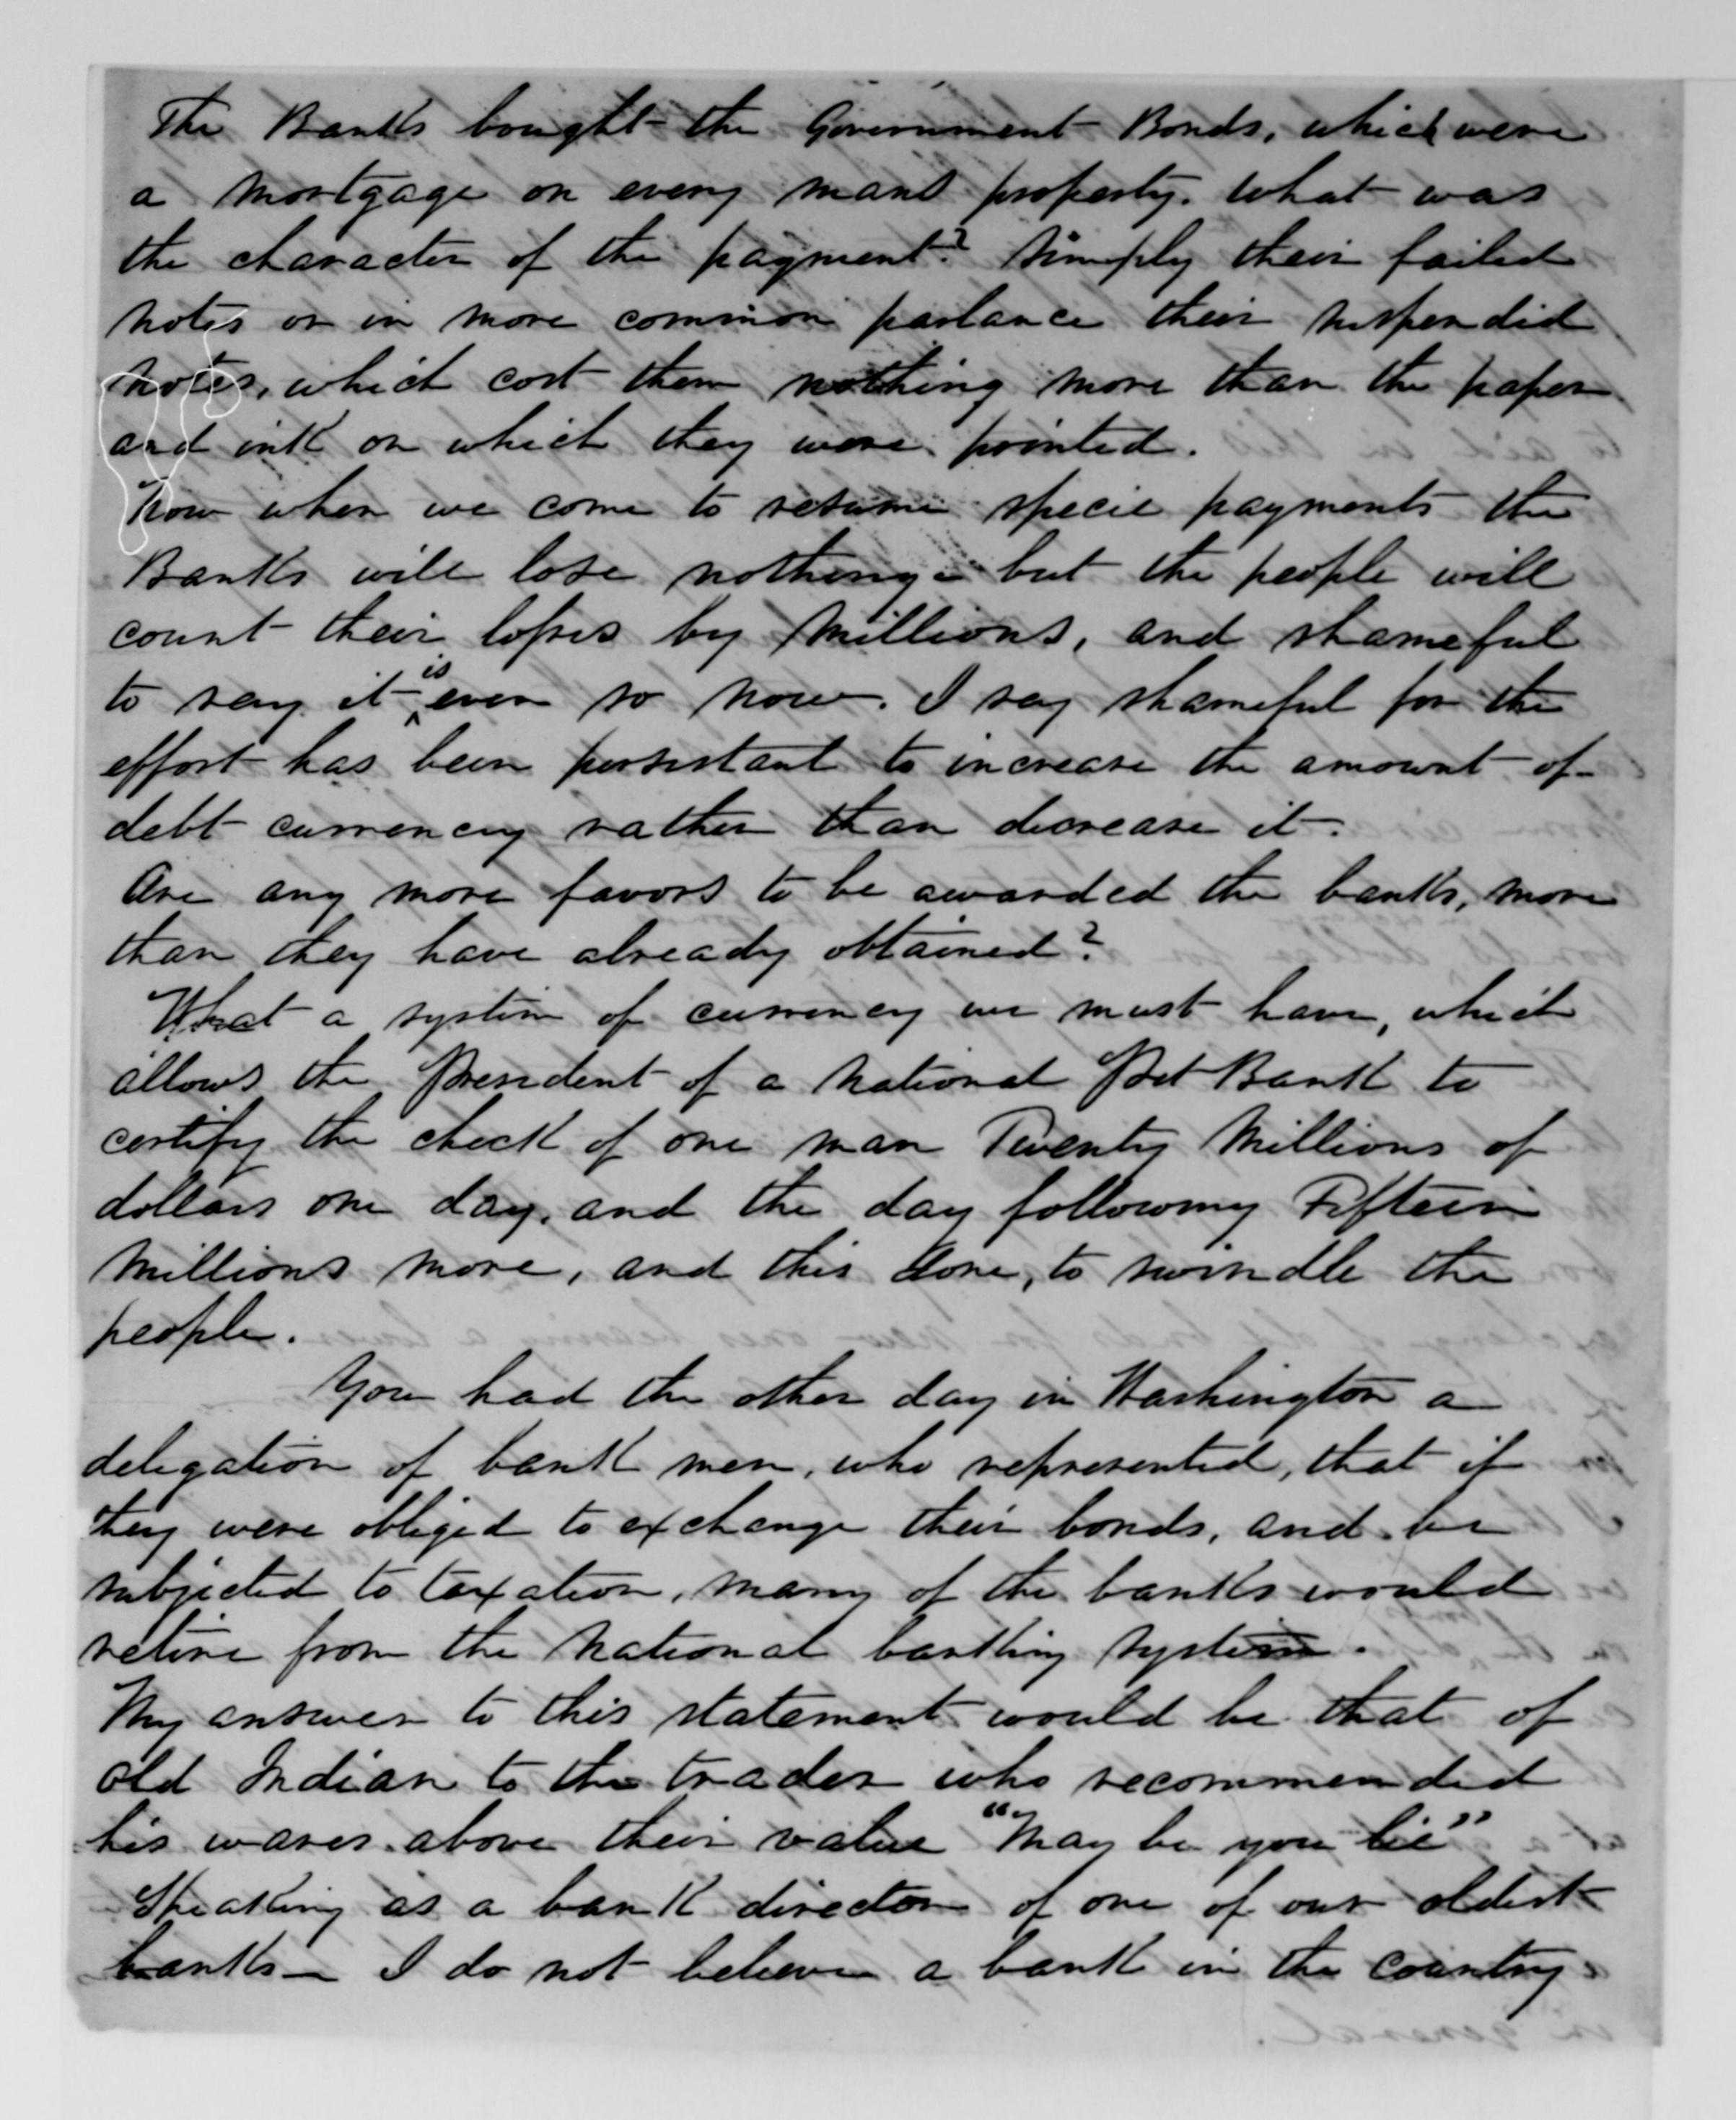 The Banks bought the Government Bonds, which were
a mortgage on every mans property. What was
the character of the payment? Simply their failed
notes or in more common parlance their suspended
notes, which cost them nothing more than the paper
and ink on which they were printed.
Now when we come to resume specie payments the
Banks will lose nothing - but the people will
count their losses by Millions, and shameful
to say it is even so now. I say shameful for the
effort has been persistant to increase the amount of
debt currency rather than decrease it.
Are any more favors to be awarded the banks, more
than they have already obtained?
What a system of currency we must have, which
allows the President of a National Pet Bank to
certify the check of one man Twenty Millions of
dollars one day, and the day following Fifteen
Millions more, and this done, to swindle the
people.
You had the other day in Washington a
delegation of bank men, who represented, that if
they were obliged to exchange their bonds, and be
subjected to taxation, many of the banks would
retire from the National banking system.
My answer to this statement would be that of
old Indian to the trader who recommended
his wares above their value "May be you lie"
Speaking as a bank director of one of our oldest
banks - I do not believe a bank in the country